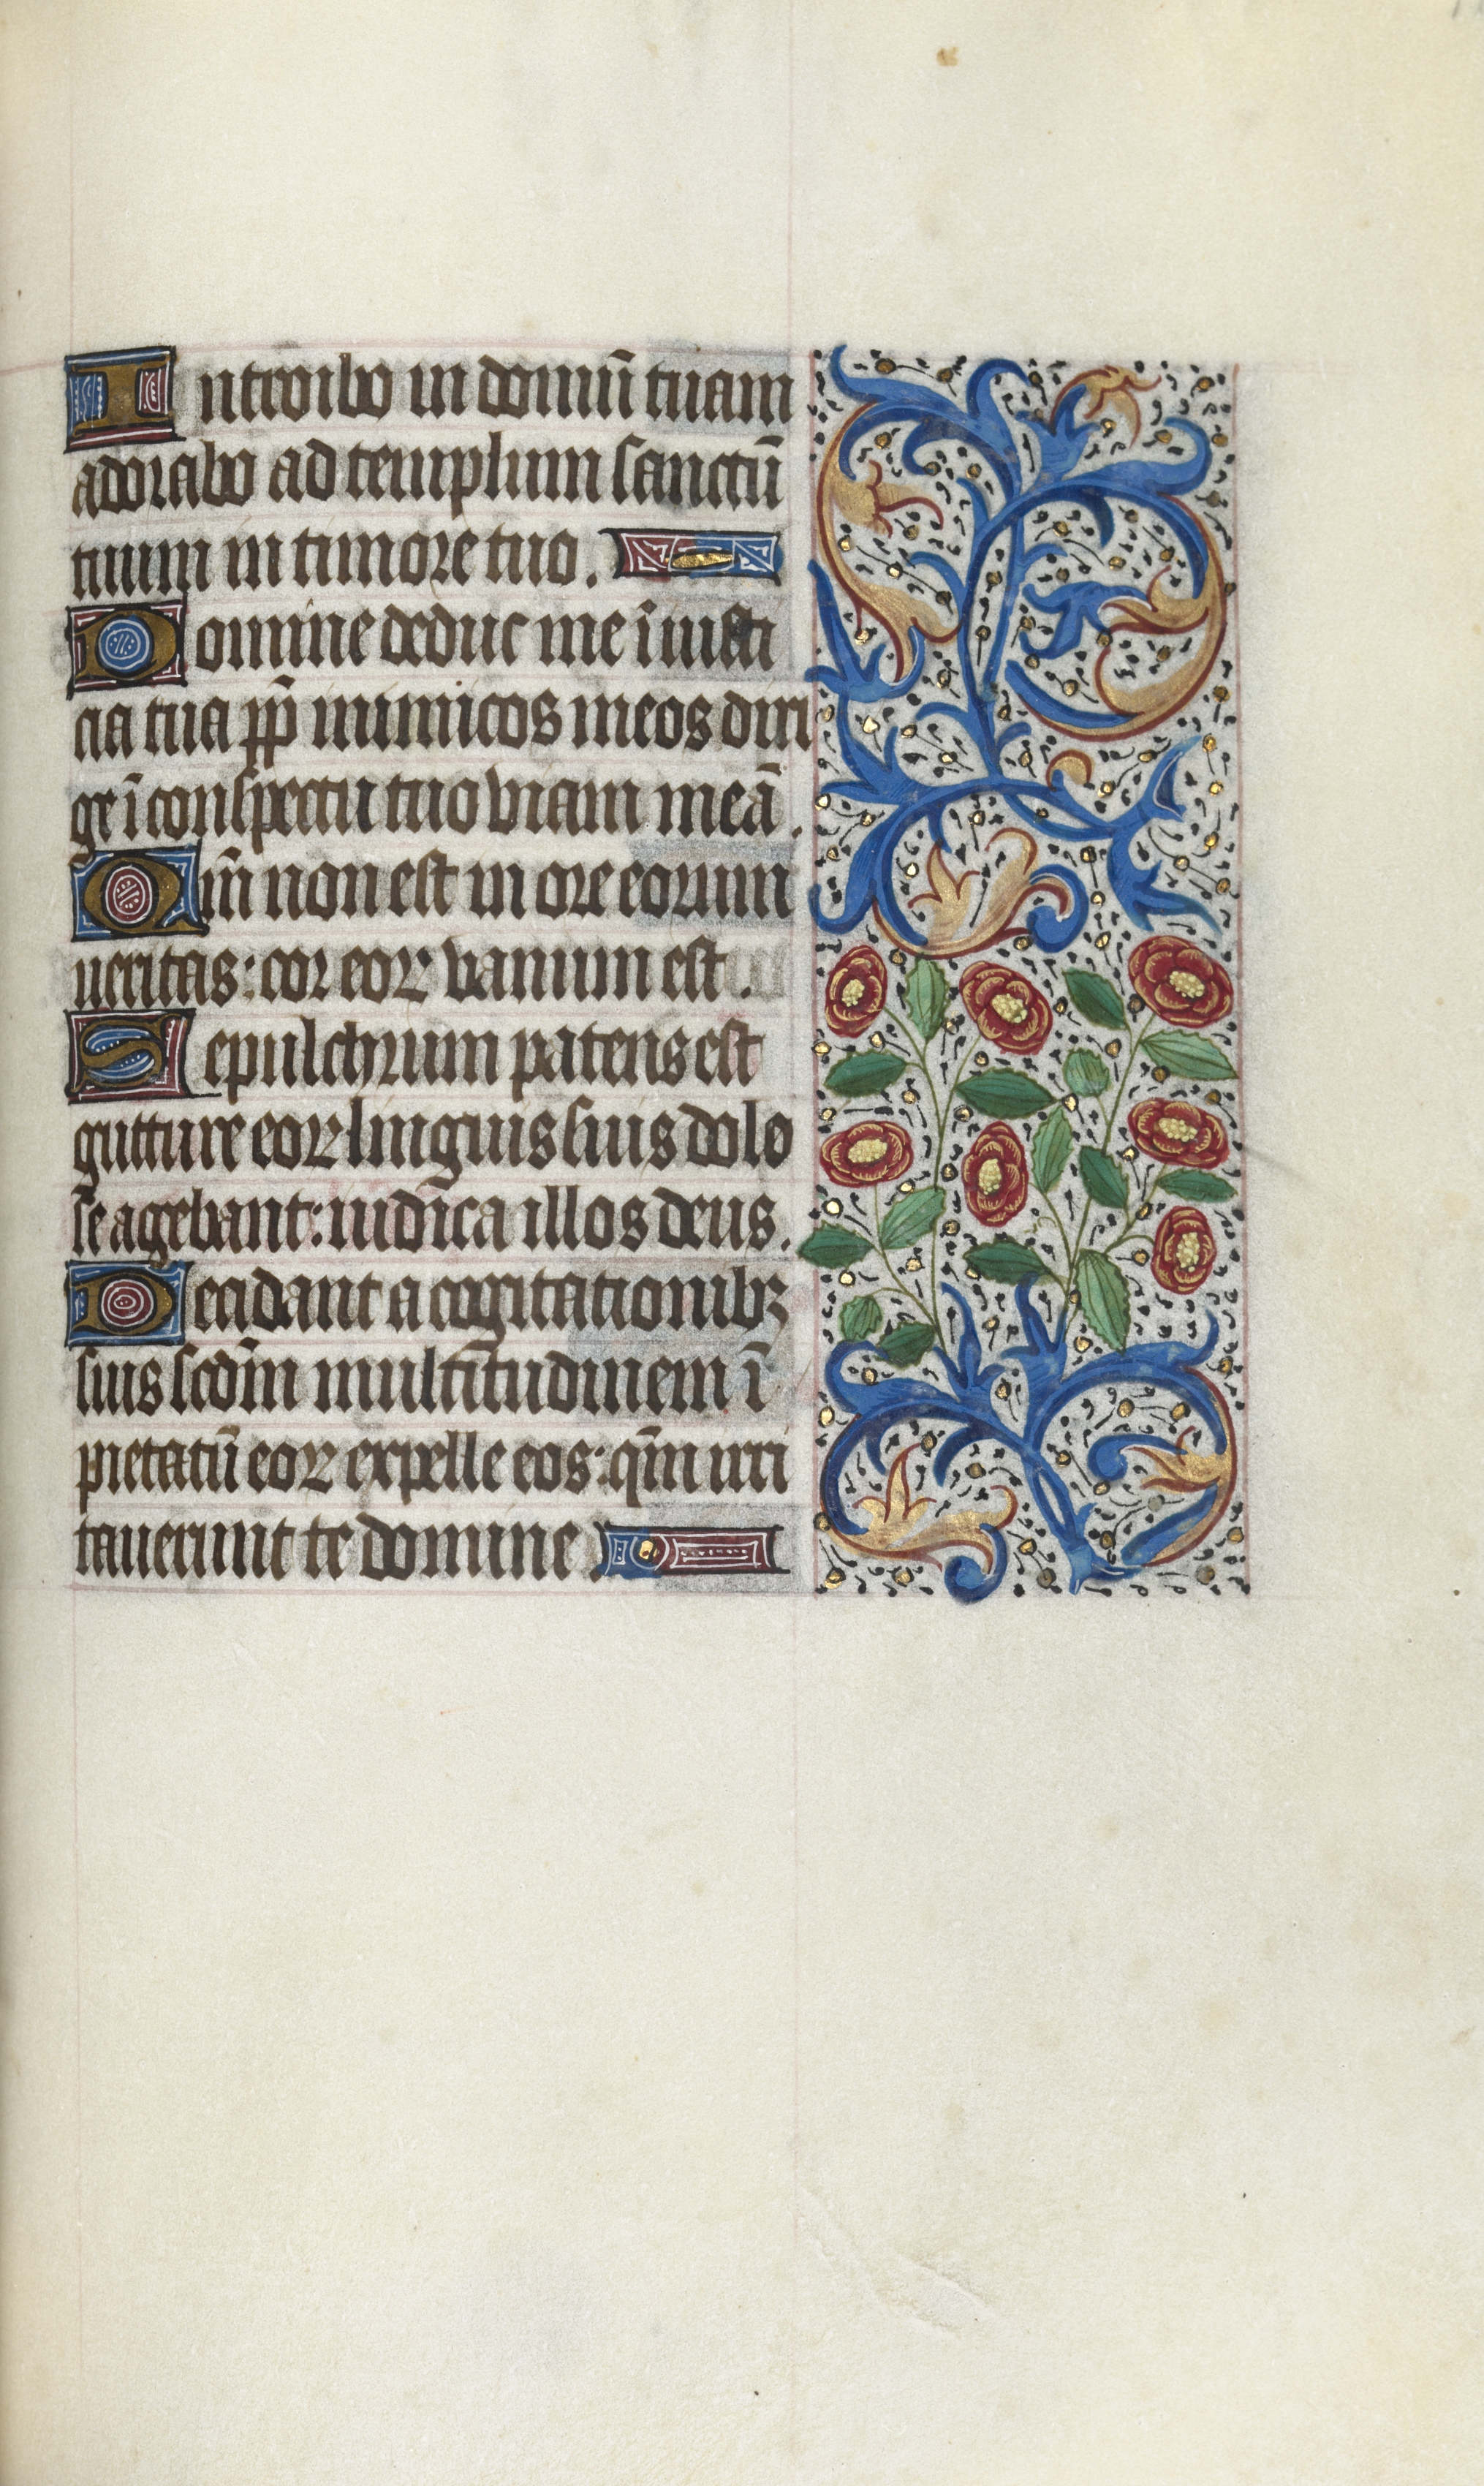 Introibo in domū tuam
adorabo ad templum sanctū
tuum in timore tuo.
Domine deduc me ī iusti
cia tua pp̄ inimicos meos diri
ge ī conspectu tuo viam meā.
Qm̄ non est in ore eorum
ueritas: cor eoꝝ vanum est.
Sepulchrum patens est
guttur eoꝝ linguis suis dolo
se agebant: iudica illos deus.
Decidant a cogitationibꝫ
suis scdm̄ multitudinem ī
pietatū eoꝝ expelle eos: qm̄ irri
tauerunt te domine.